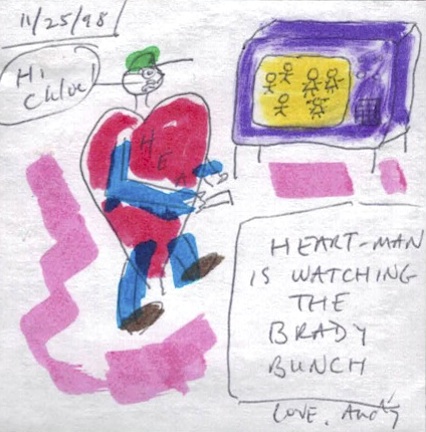 11/25/98
Hi
Chloe!
HEA
HEART-MAN
IS WATCHING
THE
BRADY
BUNCH
LOVE, Andy